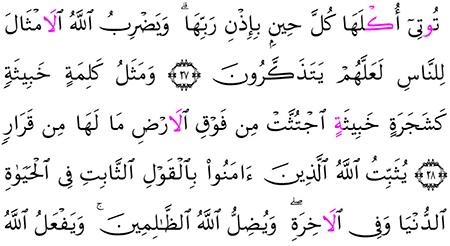 تُوتِىٓ أُكْلَهَا كُلَّ حِينِۭ بِإِذْنِ رَبِّهَا ۗ وَيَضْرِبُ اُ۬للَّهُ اُ۬لَامْثَالَ
لِلنَّاسِ لَعَلَّهُمْ يَتَذَكَّرُونَ ۝٢٧ وَمَثَلُ كَلِمَةٍ خَبِيثَةٖ
كَشَجَرَةٍ خَبِيثَةٍ اِ۟جْتُثَّتْ مِن فَوْقِ اِ۬لَارْضِ مَا لَهَا مِن قَرَارٖ
۝٢٨ يُثَبِّتُ اُ۬للَّهُ اُ۬لذِينَ ءَامَنُواْ بِالْقَوْلِ اِ۬لثَّابِتِ فِى اِ۬لْحَيَوٰةِ
اِ۬لدُّنْيَا وَفِى اِ۬لَاخِرَةِ ۖ وَيُضِلُّ اُ۬للَّهُ اُ۬لظَّـٰلِمِينَ ۚ وَيَفْعَلُ اُ۬للَّهُ